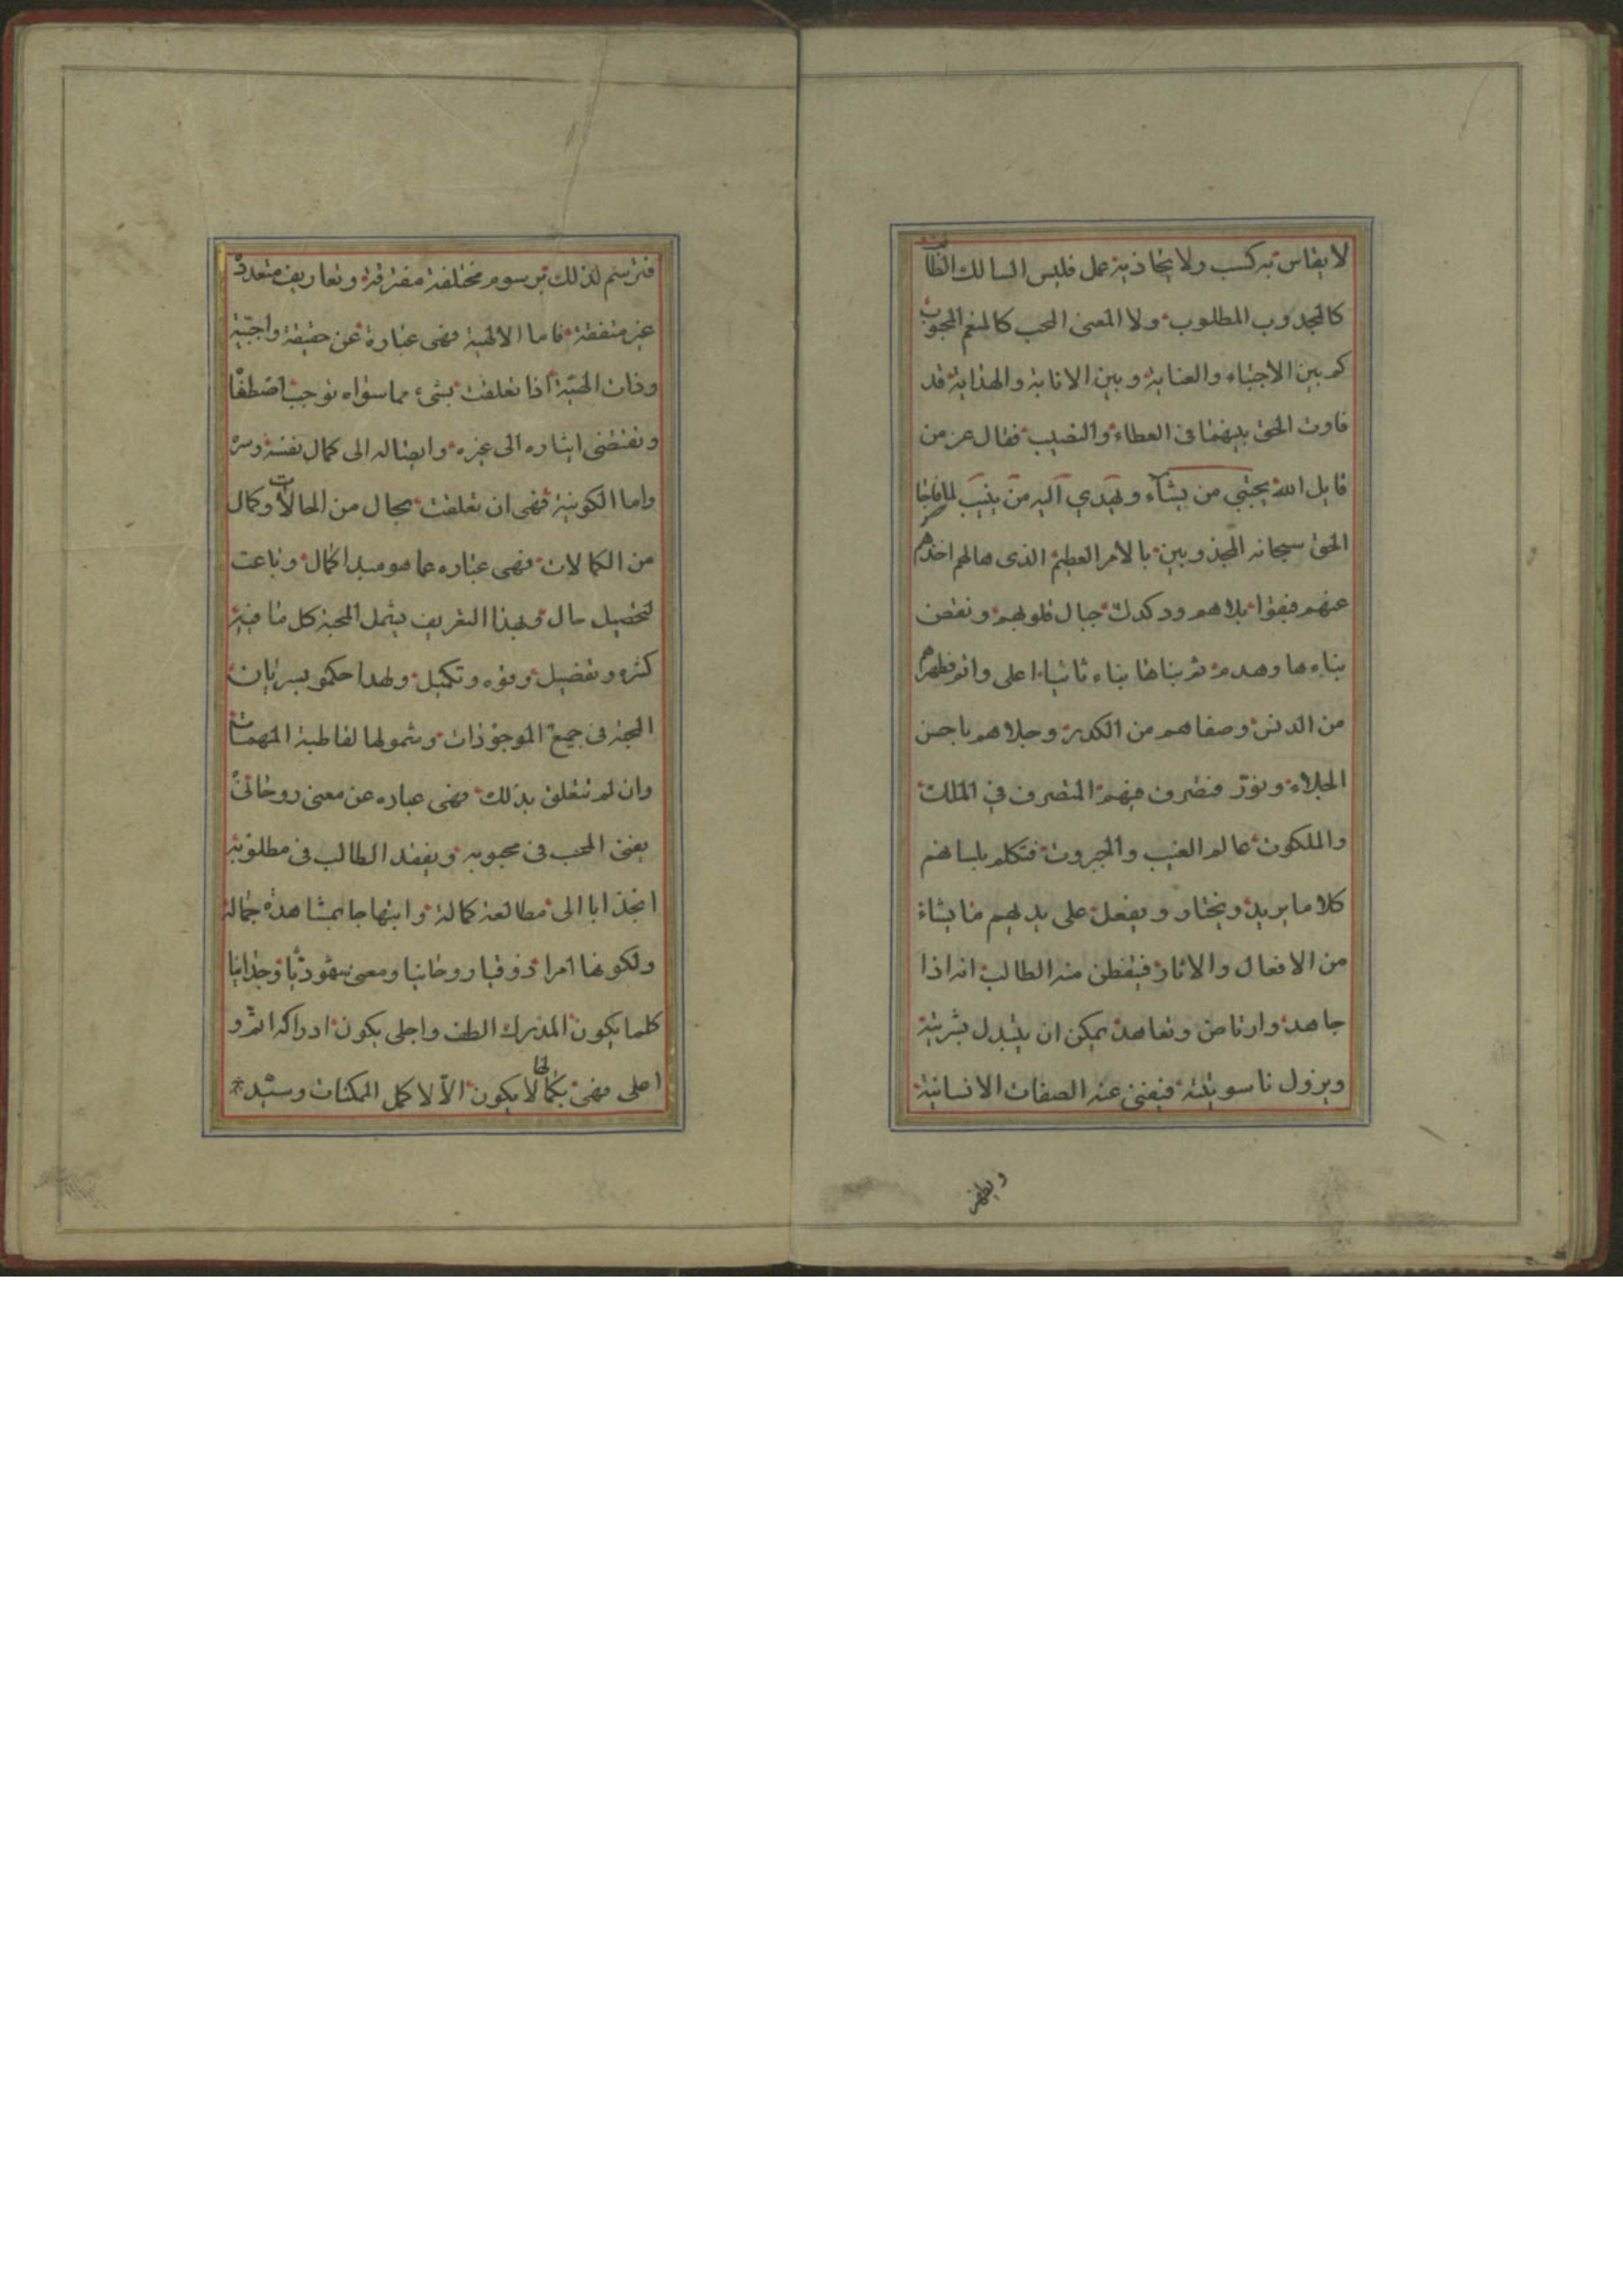 لا يقاس به كسب ولا يحاذيه عمل فليس السالك الطالب
كالمجذوب المطلوب ولا المعنى المحب كالمنعم المحبوب
كم بين الاجتباء والعناية وبين الانابة والهداية قد
فاوت الحق بينهما فى العطاء والنصيب فقال عز من
قايل الله يجتبي من يشآء ويهدي اليه من ينيب لما فاجا
الحق سبحانه المجذوبين بالامر العظيم الذى هالهم اخذهم
عنهم فبقوا بلاهم ودكدك جبال قلوبهم ونقض
بناءها وهدم ثم بناها بناء ثانيا اعلى واتم فطهرهم
من الدنس وصفاهم من الكدر وجلاهم باحسن
الجلاء ونور فتصرف فيهم المتصرف في الملك
والملكوت عالم الغيب والجبروت فتكلم بلسانهم
كلاما يريد ويختار ويفعل على يديهم ما يشاء
من الافعال والاثار فيتفطن منه الطالب انه اذا
جاهد وارتاض وتعاهد يمكن ان يتبدل بشريته
ويزول ناسوتيته فيفنى عنه الصفات الانسانية
ويظهر
فترسم لذلك برسوم مختلفة مفترقة وتعاريف متعددة
غير متفقة فاما الالهية فهى عبارة عن حقيقة واجبية
وذات الهية اذا تعلقت بشىء مما سواه توجب اصطفا
وتقتضى ايثاره الى غيره وايصاله الى كمال نفسه وسره
واما الكونية فهى ان تعلقت بحال من الحالات وكمال
من الكمالات فهى عباره عما هو مبدا كمال وباعث
لتحصيل حال وبهذا التعريف يشمل المحبة كل ما فيه
كثره وتفصيل وقوه وتكميل ولهذا حكمو بسريان
المحبة فى جميع الموجودات وشمولها لقاطبة المهيات
وان لم تتعلق بذلك فهى عباره عن معنى روحانى
يفنى المحب فى محبوبه ويفقد الطالب فى مطلوبه
انجذابا الى مطالعة كماله وابتهاجا بمشاهدة جماله
ولكونها امرا ذوقيا روحانيا ومعنى شهوديا وجدانيا
كلما يكون المدرك الطف واجلى يكون ادراكه اتم و
اعلى فهى بكمالها لا يكون الا لاكمل الممكنات وسيد